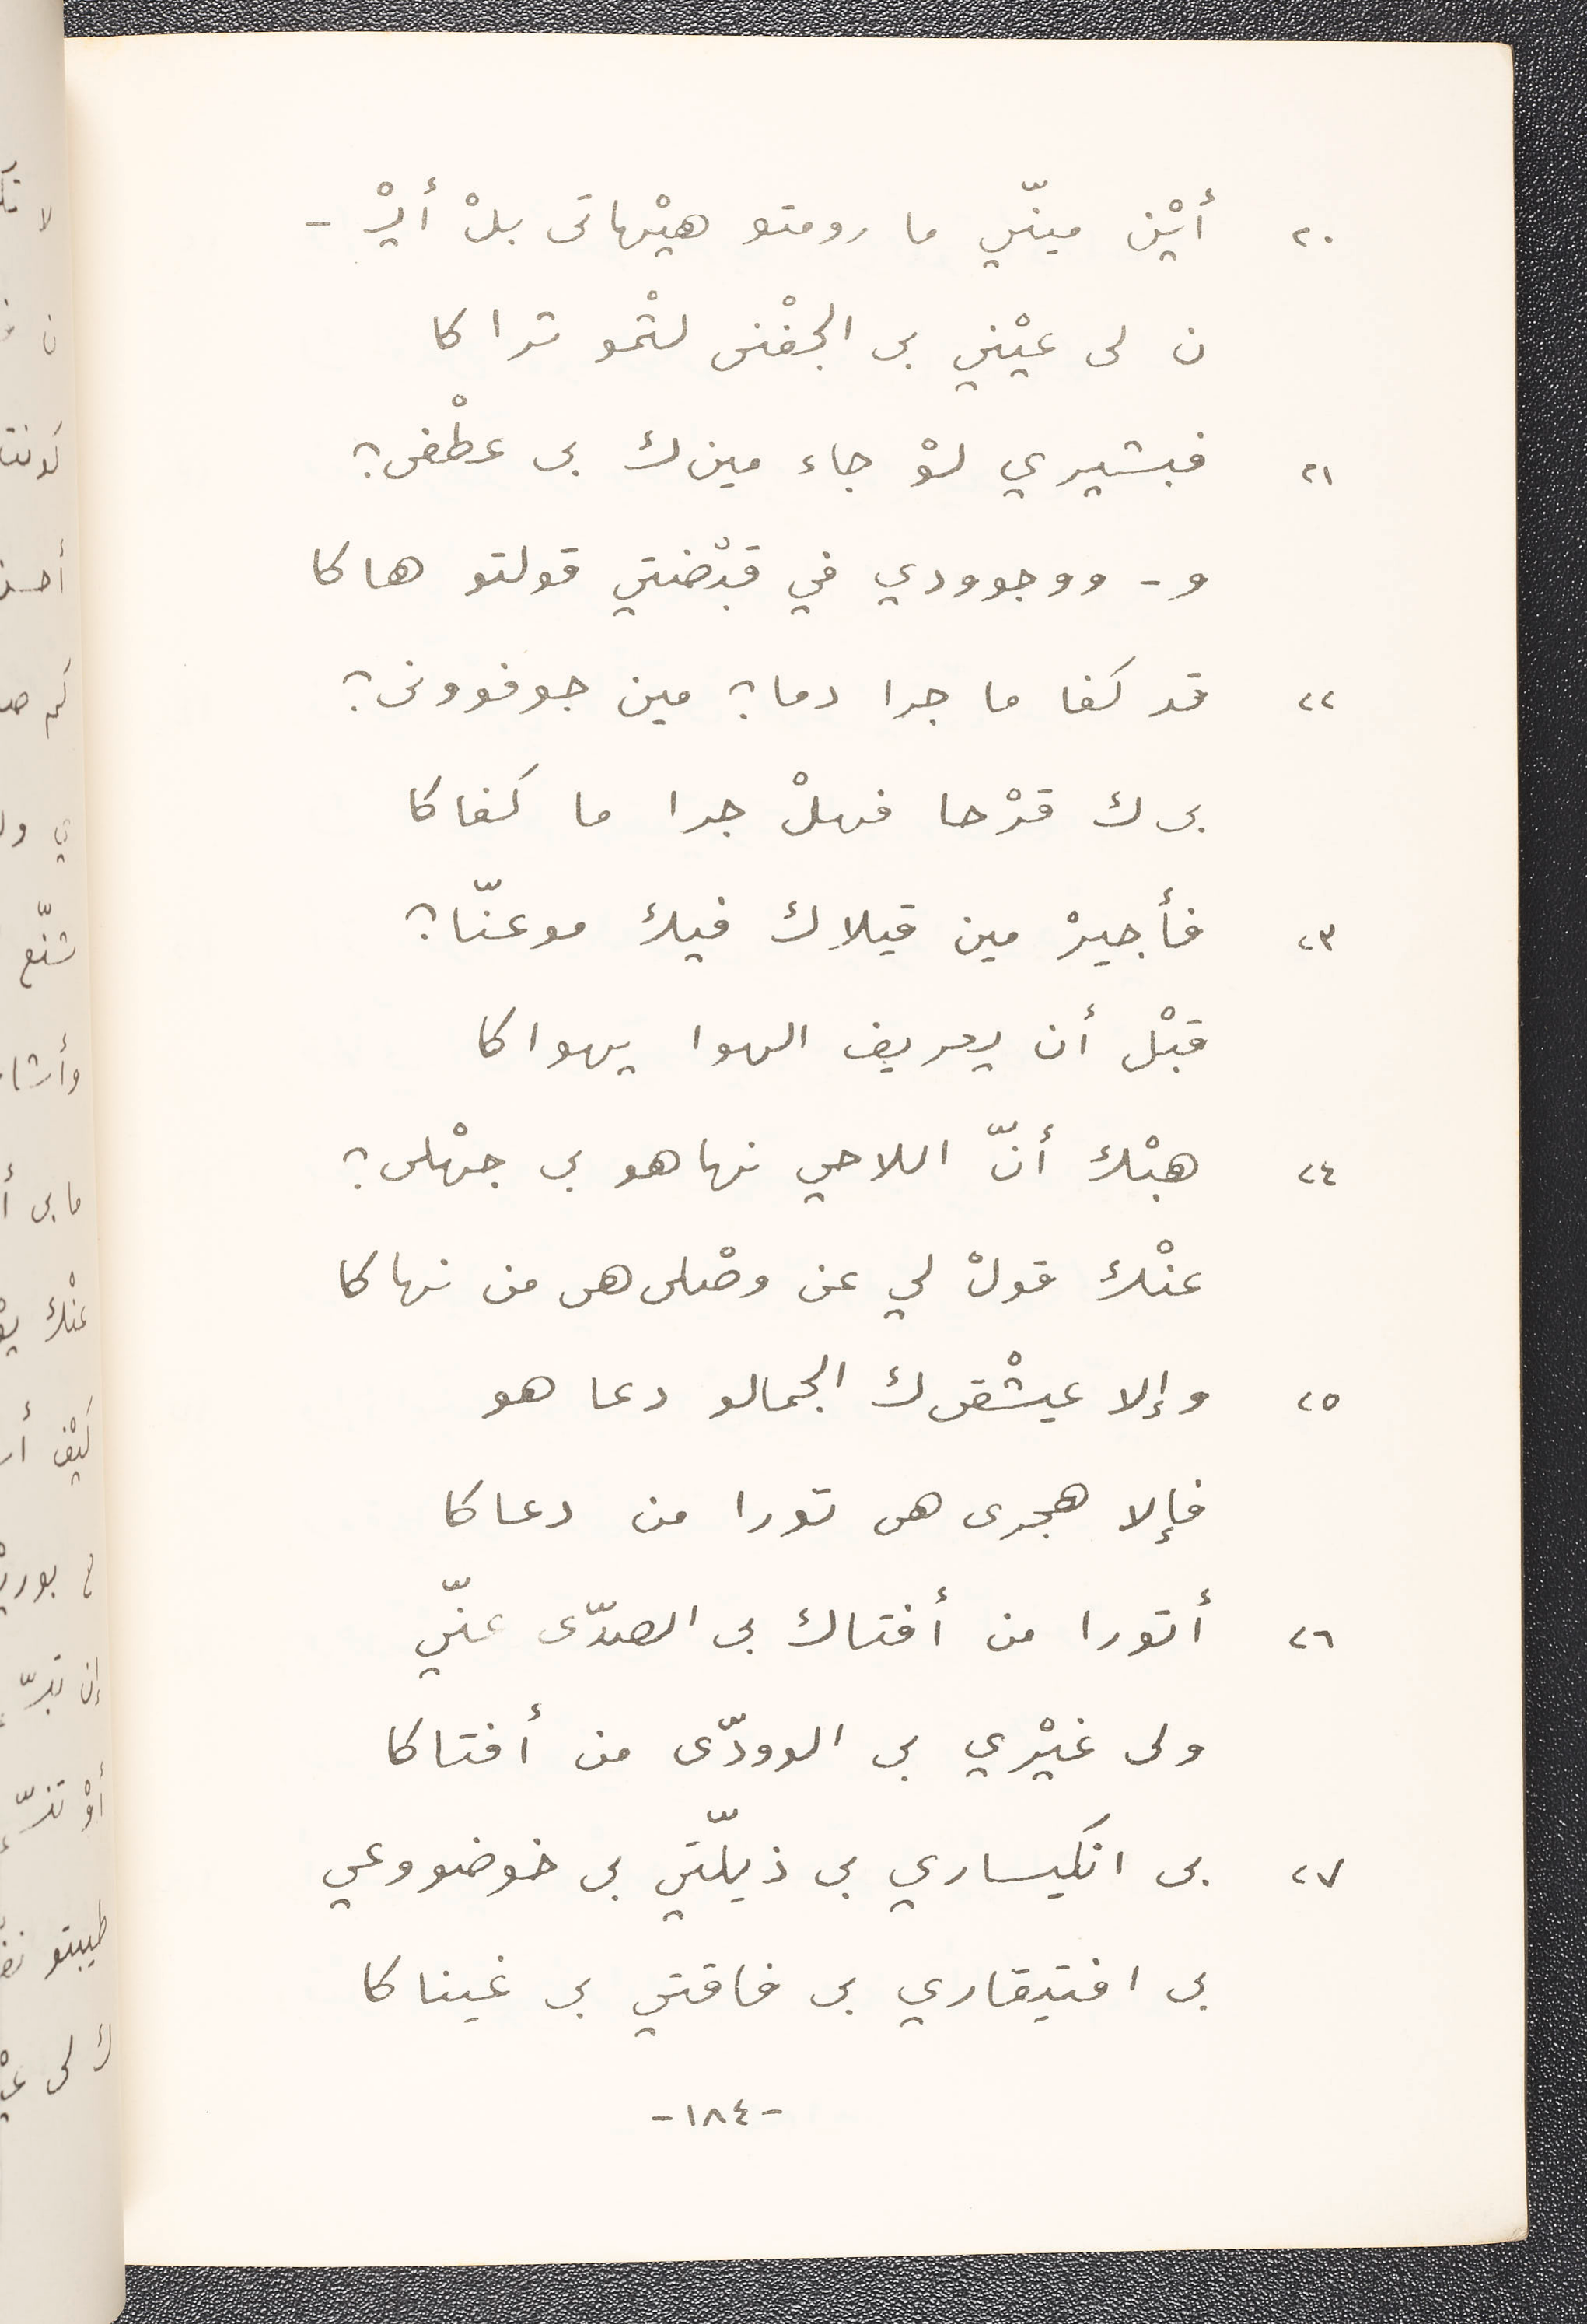 ٢٠ أيْن مينّي ما رومتو هيْهاتى بلْ أيْـ -
ن لى عيْني بى الجفْنى لثْمو ثراكا
٢١ فبشيري لوْ جاء مينك بى عطْفى؟
و- ووجوودي في قبْضتي قولتو هاكا
٢٢ قد كفا ما جرا دما؟ مين جوفوونى؟
بىك قرْحا فهلْ جرا ما كفاكا
٢٣ فأجيرْ مين قيلاك فيك موعنّا؟
قبْل أن يعريف الهوا يهواكا
٢٤ هبْك أنّ اللاحي نهاهو بى جهْلى؟
عنْك قولْ لي عن وصْلىهى من نهاكا
٢٥ وإلا عيشْقىك الجمالو دعاهو
فإلا هجرىهى تورا من دعاكا
٢٦ أتورا من أفتاك بى الصدّى عنّي
ولى غيْري بى الوودّى من أفتاكا
٢٧ بى انكيساري بى ذيلّتي بى خوضووعي
بى افتيقاري بى فاقتي بى غيناكا
-١٨٤-